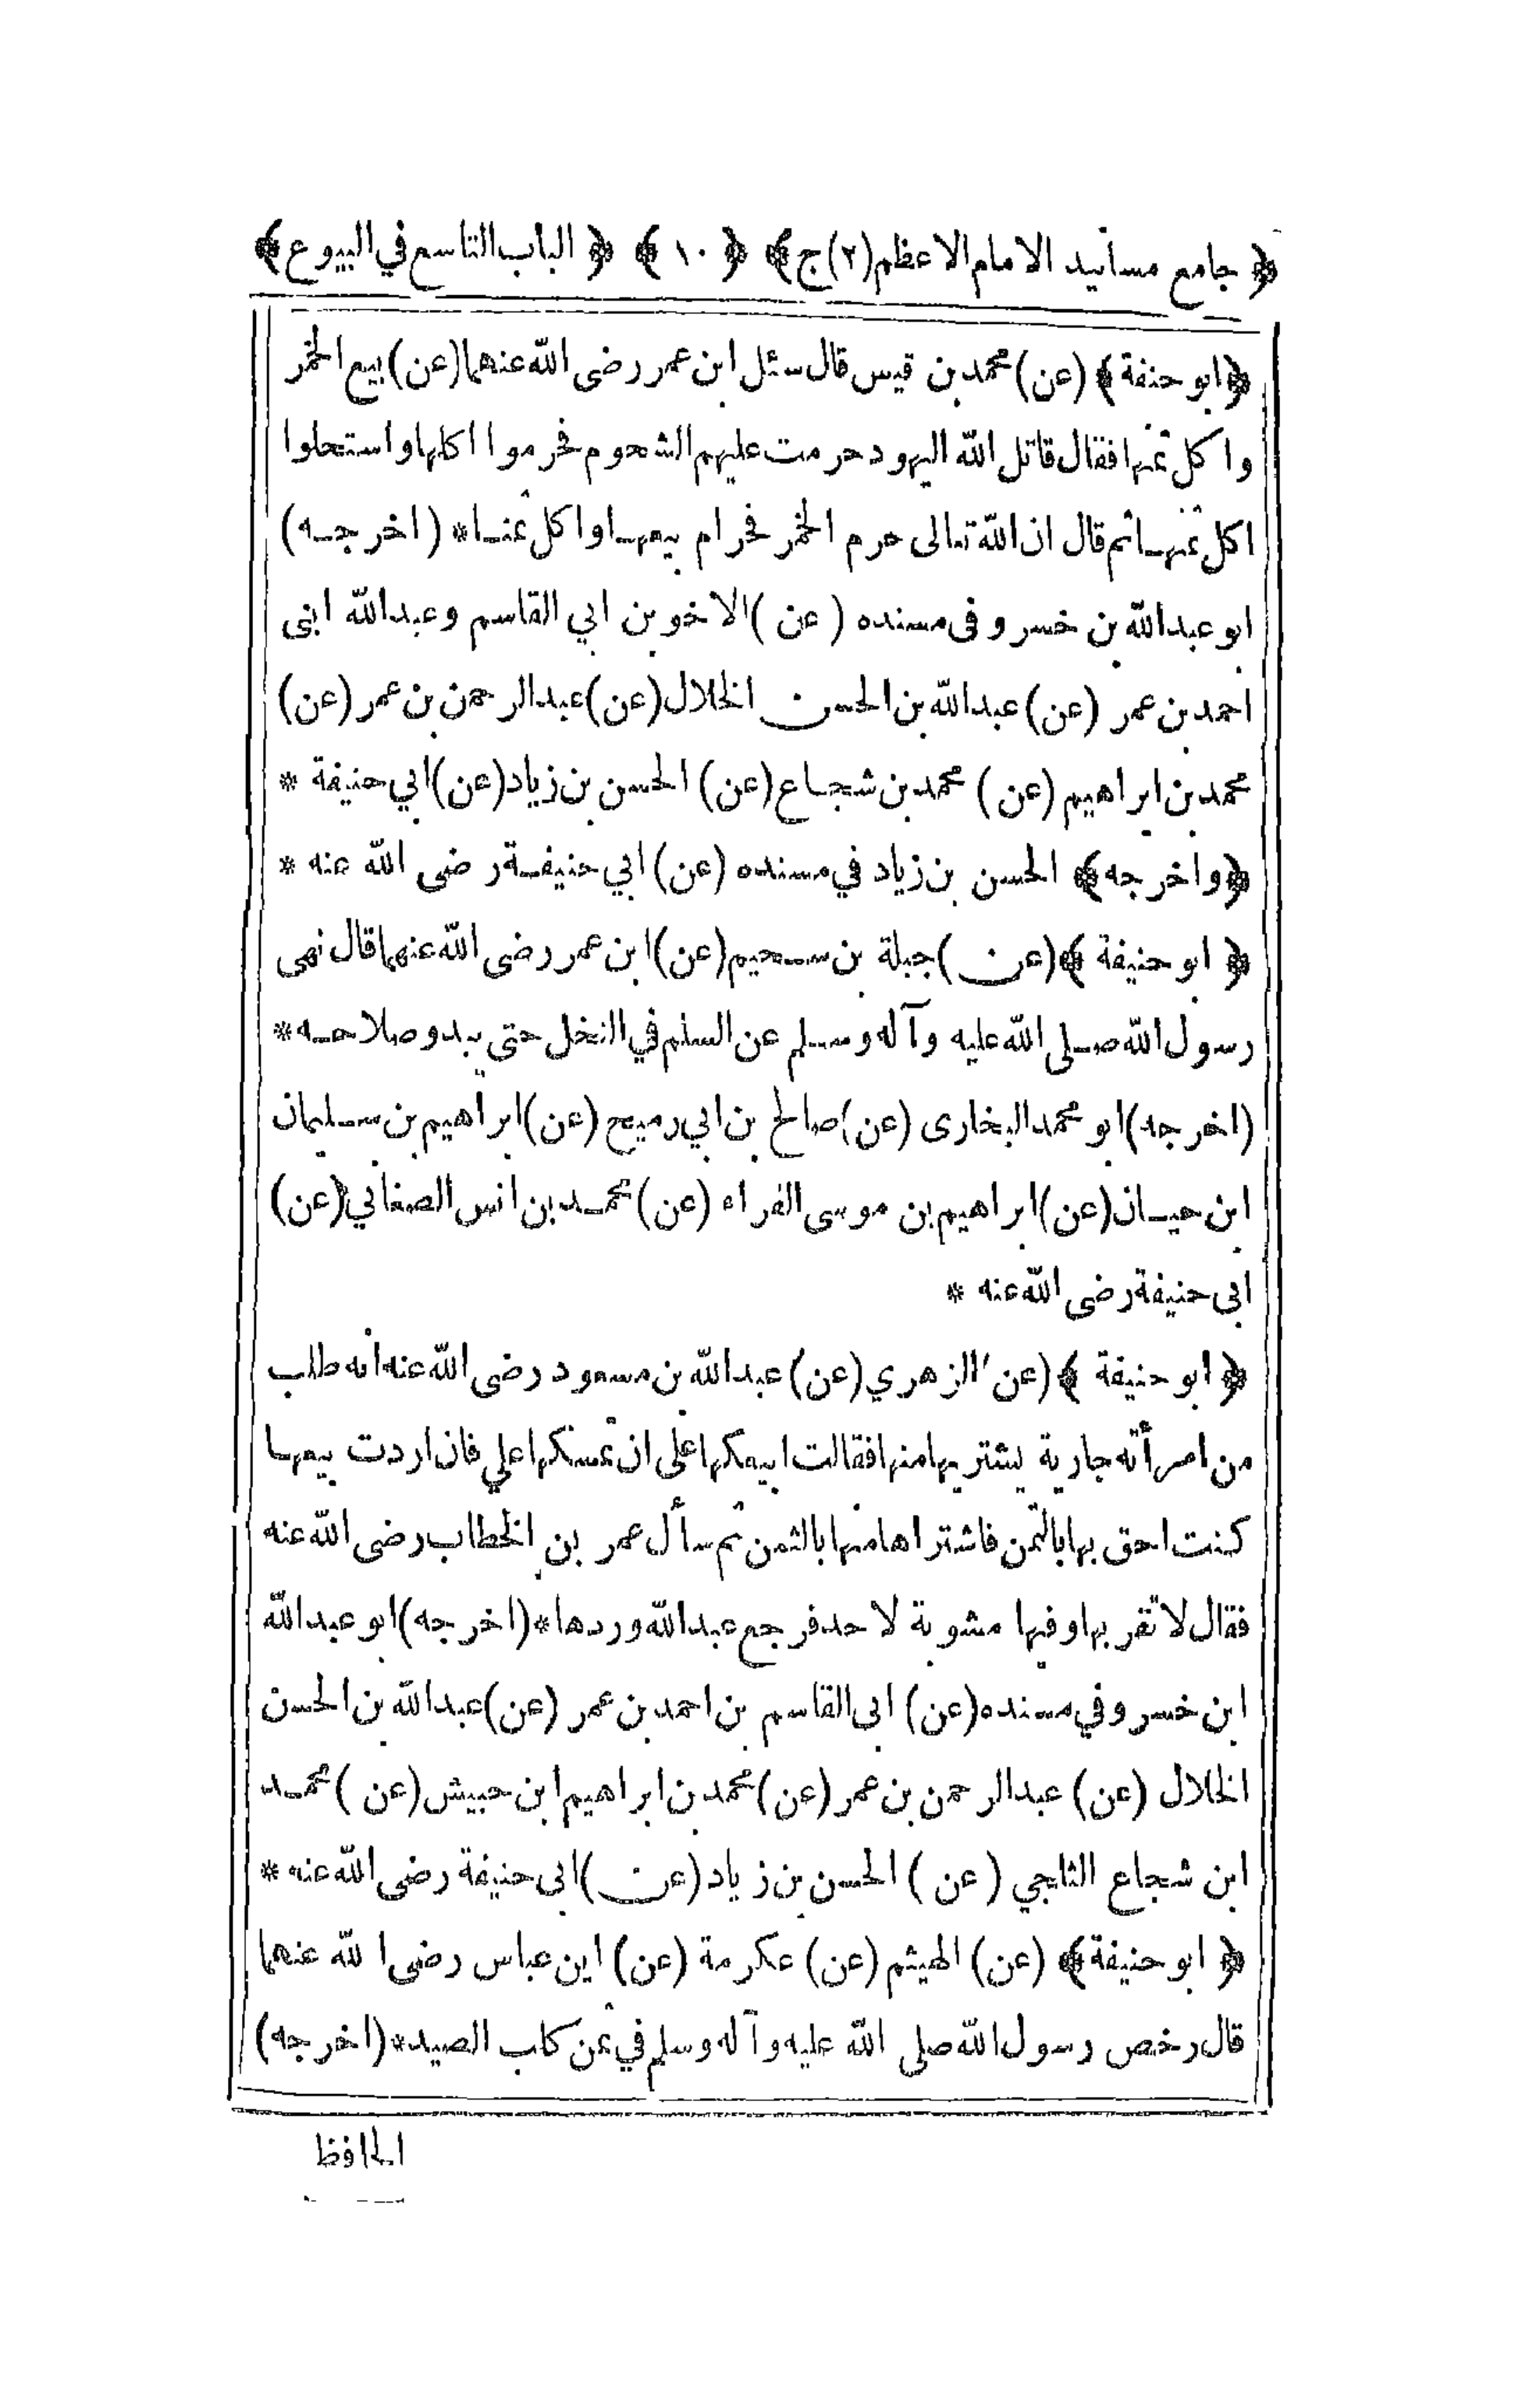 ﴿ جامع مسانيد الامام الاعظم (٢) ج﴾ ﴿١٠﴾ ﴿ الباب التاسع في البيوع ﴾
﴿ابو حنفة﴾ (عن) محمد بن قيس قال سئل ابن عمر رضى الله عنهما (عن) بيع الخمر
واكل ثمنها فقال قاتل الله اليهود حرمت عليهم الشحوم فحرموا اكلها واستحلوا
اكل ثمنها ثم قال ان الله تعالى حرم الخمر فحرام بيعها واكل ثمنها * (اخرجه)
ابو عبد الله بن خسرو فى مسنده (عن) الاخوين ابي القاسم وعبد الله ابنى
احمد بن عمر (عن) عبد الله بن الحسن الخلال (عن) عبد الرحمن بن عمر (عن)
محمد بن ابراهيم (عن) محمد بن شجاع (عن) الحسن بن زياد (عن) ابي حنيفة *
﴿واخرجه﴾ الحسن بن زياد في مسنده (عن) ابي حنيفة رضى الله عنه *
﴿ ابو حنيفة ﴾ (عن) جبلة بن سحيم (عن) ابن عمر رضى الله عنهما قال نهى
رسول الله صلى الله عليه وآله وسلم عن السلم في النخل حتى يبدو صلاحه *
(اخرجه) ابو محمد البخارى (عن) صالح بن ابي رميح (عن) ابراهيم بن سليمان
ابن حيان (عن) ابراهيم بن موسى الفراء (عن) محمد بن انس الصغاني (عن)
ابى حنيفة رضى الله عنه *
﴿ ابو حنيفة ﴾ (عن الزهري (عن) عبد الله بن مسعود رضى الله عنه انه طلب
من امرأته جارية يشتريها منها فقالت ابيعكها على ان تمسكها علي فان اردت بيعها
كنت احق بها بالثمن فاشتراها منها بالثمن ثم سأل عمر بن الخطاب رضى الله عنه
فقال لا تقربها وفيها مشوبة لاحد فرجع عبد الله وردها * (اخرجه) ابو عبد الله
ابن خسرو في مسنده (عن) ابى القاسم بن احمد بن عمر (عن) عبد الله بن الحسن
الخلال (عن) عبد الرحمن بن عمر (عن) محمد بن ابراهيم ابن حبيش (عن) محمد
ابن شجاع الثلجي (عن) الحسن بن زياد (عن) ابى حنيفة رضى الله عنه *
﴿ ابو حنيفة ﴾ (عن) الهيثم (عن) عكرمة (عن) ابن عباس رضى الله عنهما
قال رخص رسول الله صلى الله عليه وآله وسلم في ثمن كلب الصيد * (اخرجه)
الحافظ